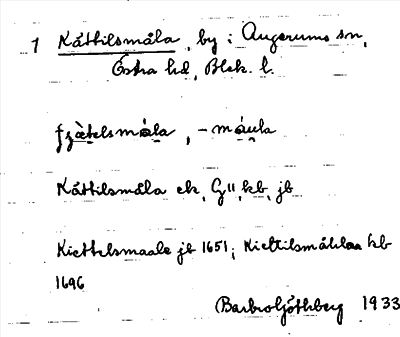 1 Kättilsmåla, by i Augerums sn,
Östra hd, Blek. l.
fzätelsmåla, -måula
Kättilsmåla ek, G11, kb, jb
Kiettelsmaale jb 1651; Kiettilsmåhlaa kb
1696
Barbro Göthberg 1933